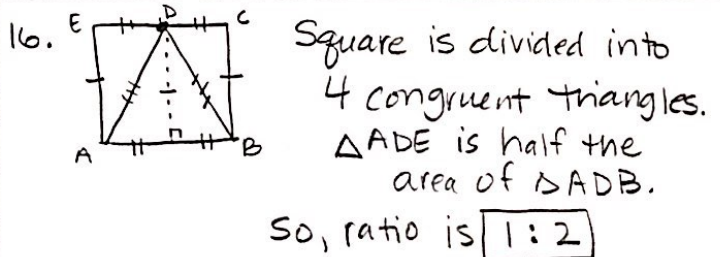 16. E D C
Square is divided into
4 congruent triangles.
A B
△ADE is half the
area of △ADB.
So, ratio is 1:2